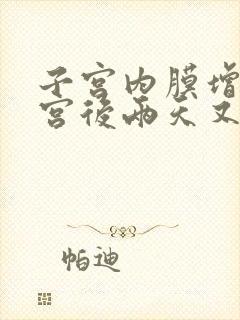 子宫内膜增
宫後兩天又
帕迪